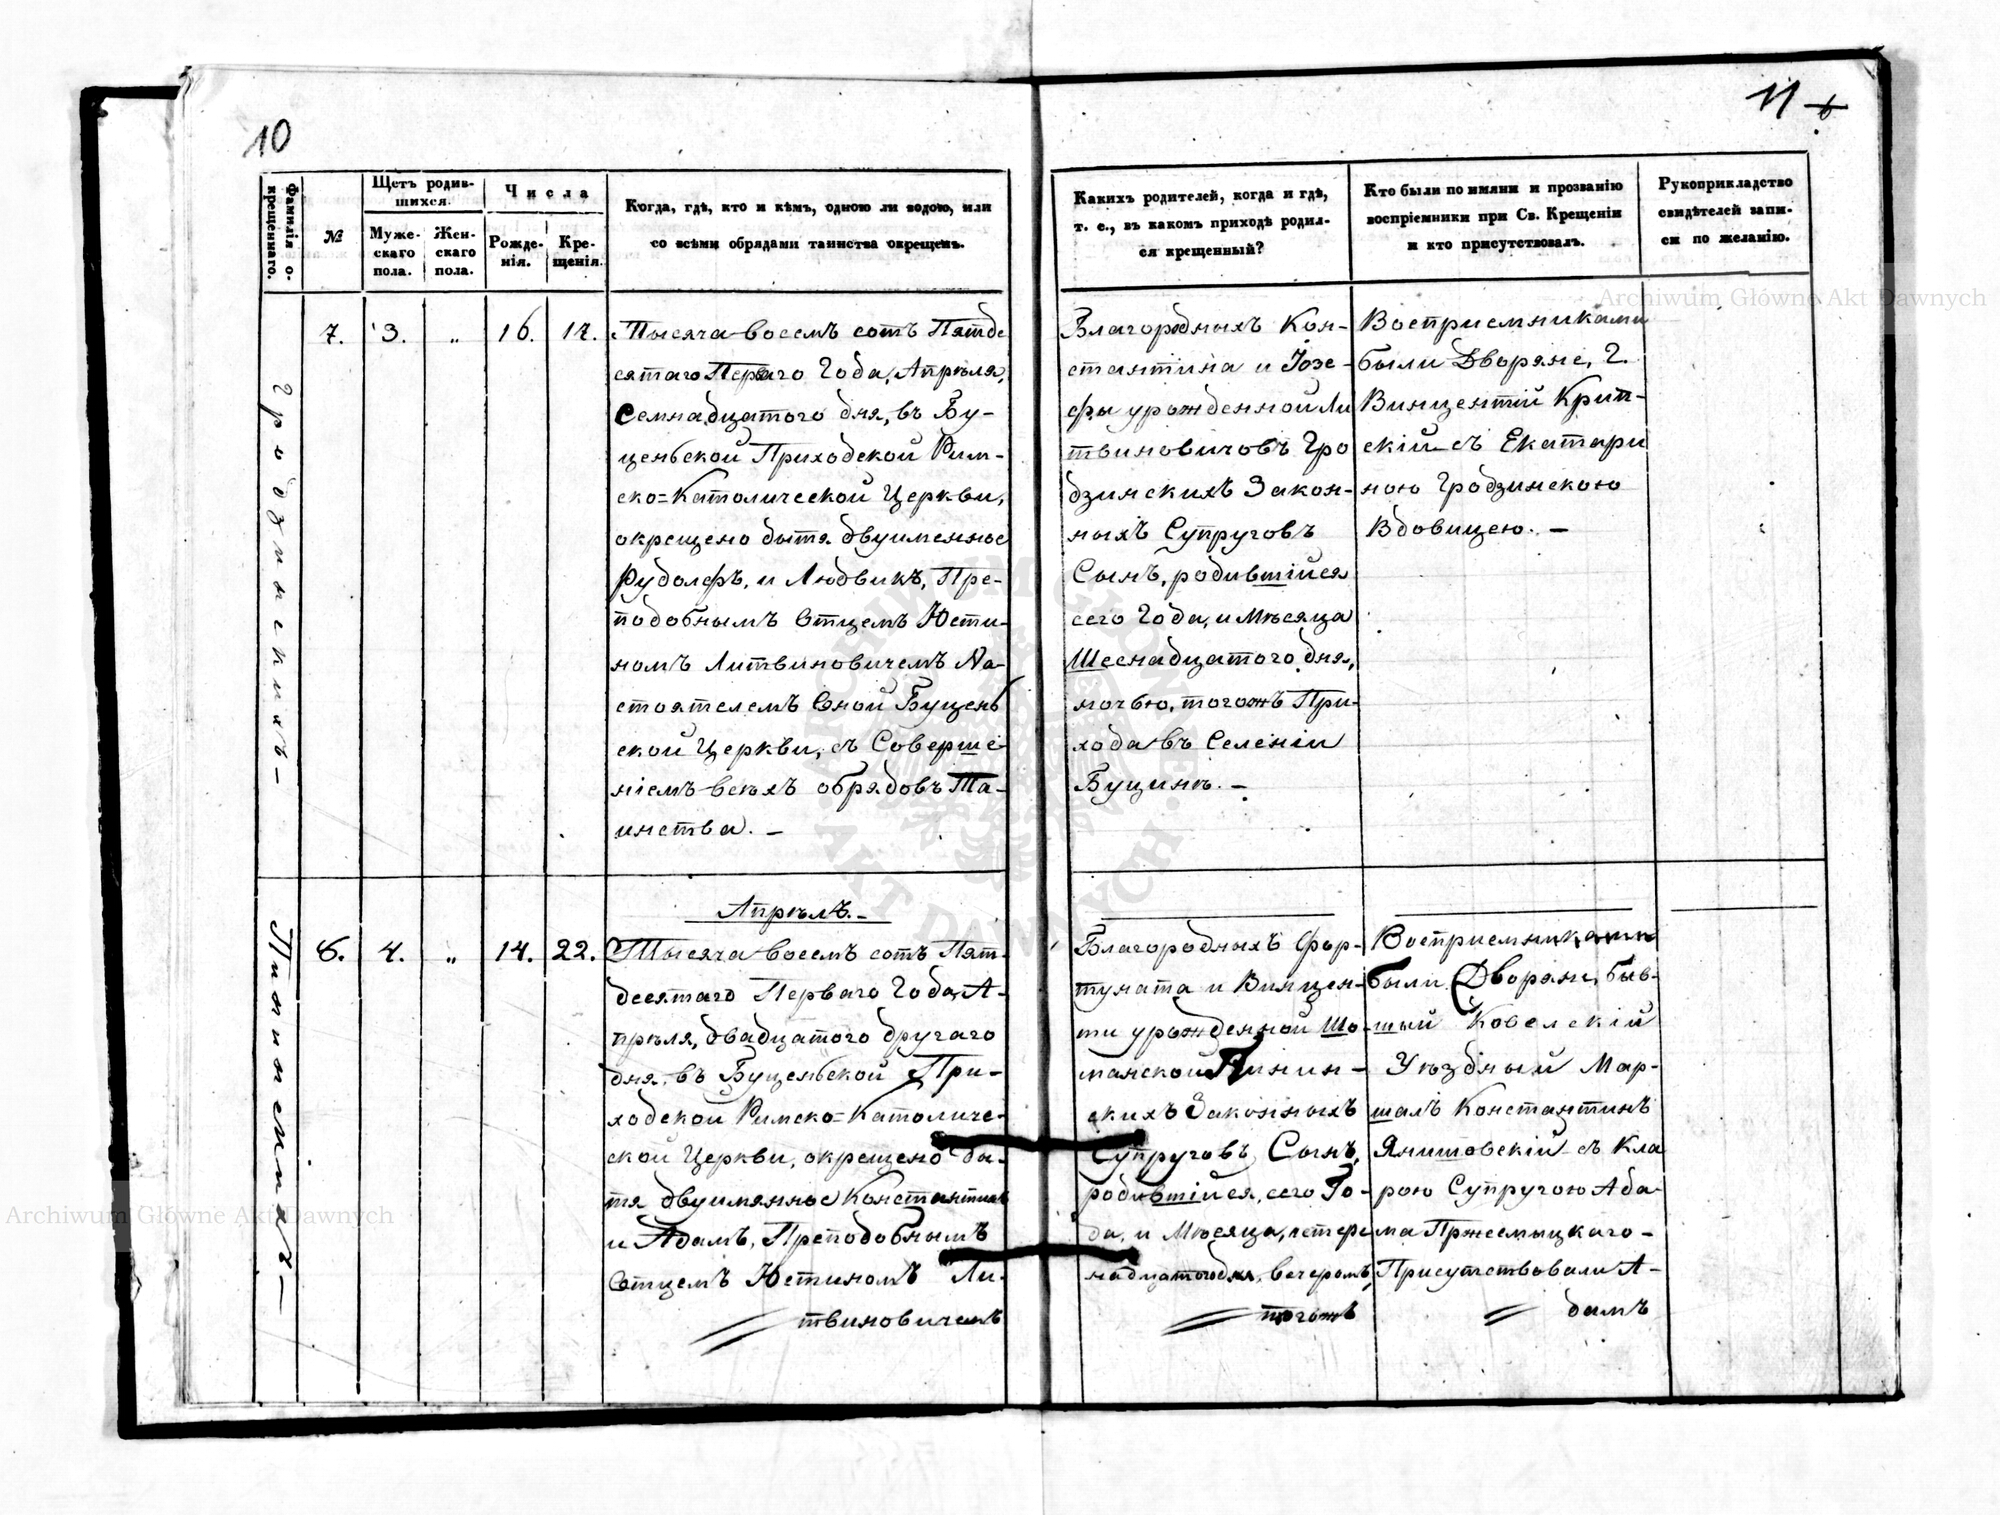 10
11
Фамилія о-
крещеннаго.
№
Щетъ родив-
шихся.
Муже-
скаго
пола.
Жен-
скаго
пола.
Числа
Рожде-
нія.
Кре-
щенія.
Когда, гдѣ, кто и кѣмъ, одною ли водою, или
со всѣми обрядами таинства окрещенъ.
Каких родителей, когда и гдѣ,
т. е., въ каком приходѣ родил-
ся крещенный?
Кто были по имяни и прозванію
воспріемники при Св. Крещеніи
и кто присутствовалъ.
Рукоприкладство
свидѣтелей запи-
си по желанію.
7.
3.
„
16.
17.
Тысяча восемъ сотъ Пятде
сятаго Перваго Года, Апрѣля,
Семнадцатого дня, въ Бу-
ценьской Приходской Рим-
ско=Католической Церкви,
окрещено дитя двуименное
Рудолфъ, и Людвикъ, Пре-
подобнымъ Отцемъ Юсти-
номъ Литвиновичемъ На-
стоятелемъ Оной Буцень
ской Церкви, съ Соверше
ніемъ всѣхъ обрядовъ Та-
инства. –
Благородныхъ Кон-
стантина и Іозе-
фы урожденной Ли
твиновичовъ Гро
дзинскихъ Закон-
ныхъ Супруговъ
Сынъ, родившійся
сего Года, и Мѣсяца
Шеснадцатого дня,
ночью, тогожъ При-
хода въ Селеніи
Буцинѣ. –
Восприемниками
были Дворяне, Г.
Винцентій Крип-
скій съ Екатари
ною Гродзинскою
Вдовицею. –
Апрѣль. –
8.
4.
„
14.
22.
Тысяча восемъ сотъ Пят-
десятаго Перваго Года, А-
прѣля, двадцатого другаго
дня, въ Буценьской При-
ходской Римско=Католиче-
ской Церкви, окрещено ди-
тя двуимянное Константинъ
и Адамъ, Преподобнымъ
Отцемъ Юстиномъ Ли-
твиновичемъ
Благородныхъ Фор-
туната и Винцен-
ти урожденной Шо-
манской Пинин-
скихъ Законныхъ
Супруговъ Сынъ,
родившійся, сего Го-
да, и Мѣсяца, четыре
надцатого дня, вечеромъ,
тогожъ
Восприемниками
были Дворяне, быв-
шый Ковелскій
Уѣздный Мар-
шалъ Константинъ
Янишовскій съ Кла
рою Супругою Ада-
ма Пржесмыцкаго –
Присутствовали А-
дамъ